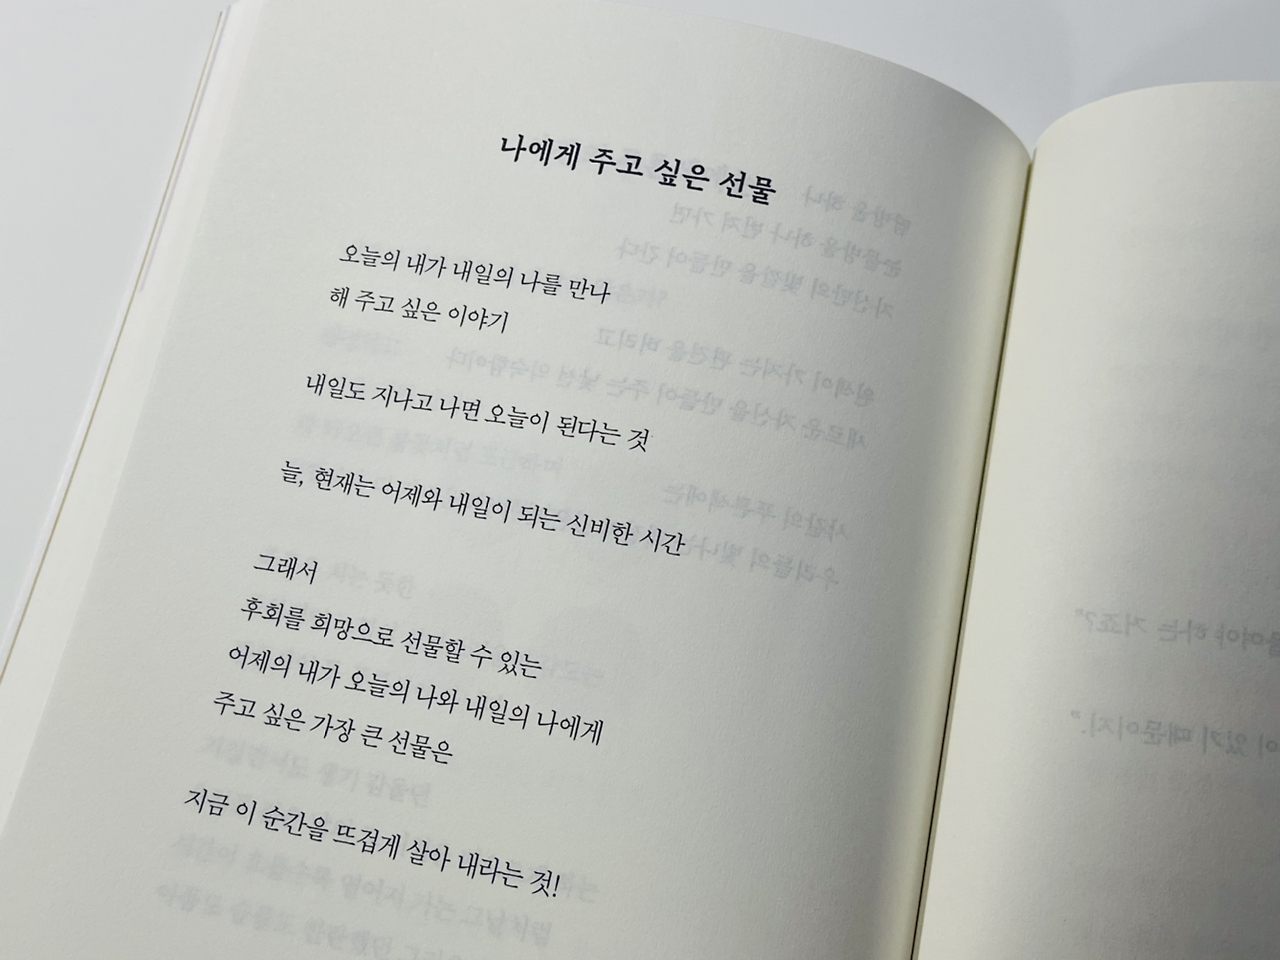 나에게 주고 싶은 선물
오늘의 내가 내일의 나를 만나
해 주고 싶은 이야기
내일도 지나고 나면 오늘이 된다는 것
늘, 현재는 어제와 내일이 되는 신비한 시간
그래서
후회를 희망으로 선물할 수 있는
어제의 내가 오늘의 나와 내일의 나에게
주고 싶은 가장 큰 선물은
지금 이 순간을 뜨겁게 살아 내라는 것!